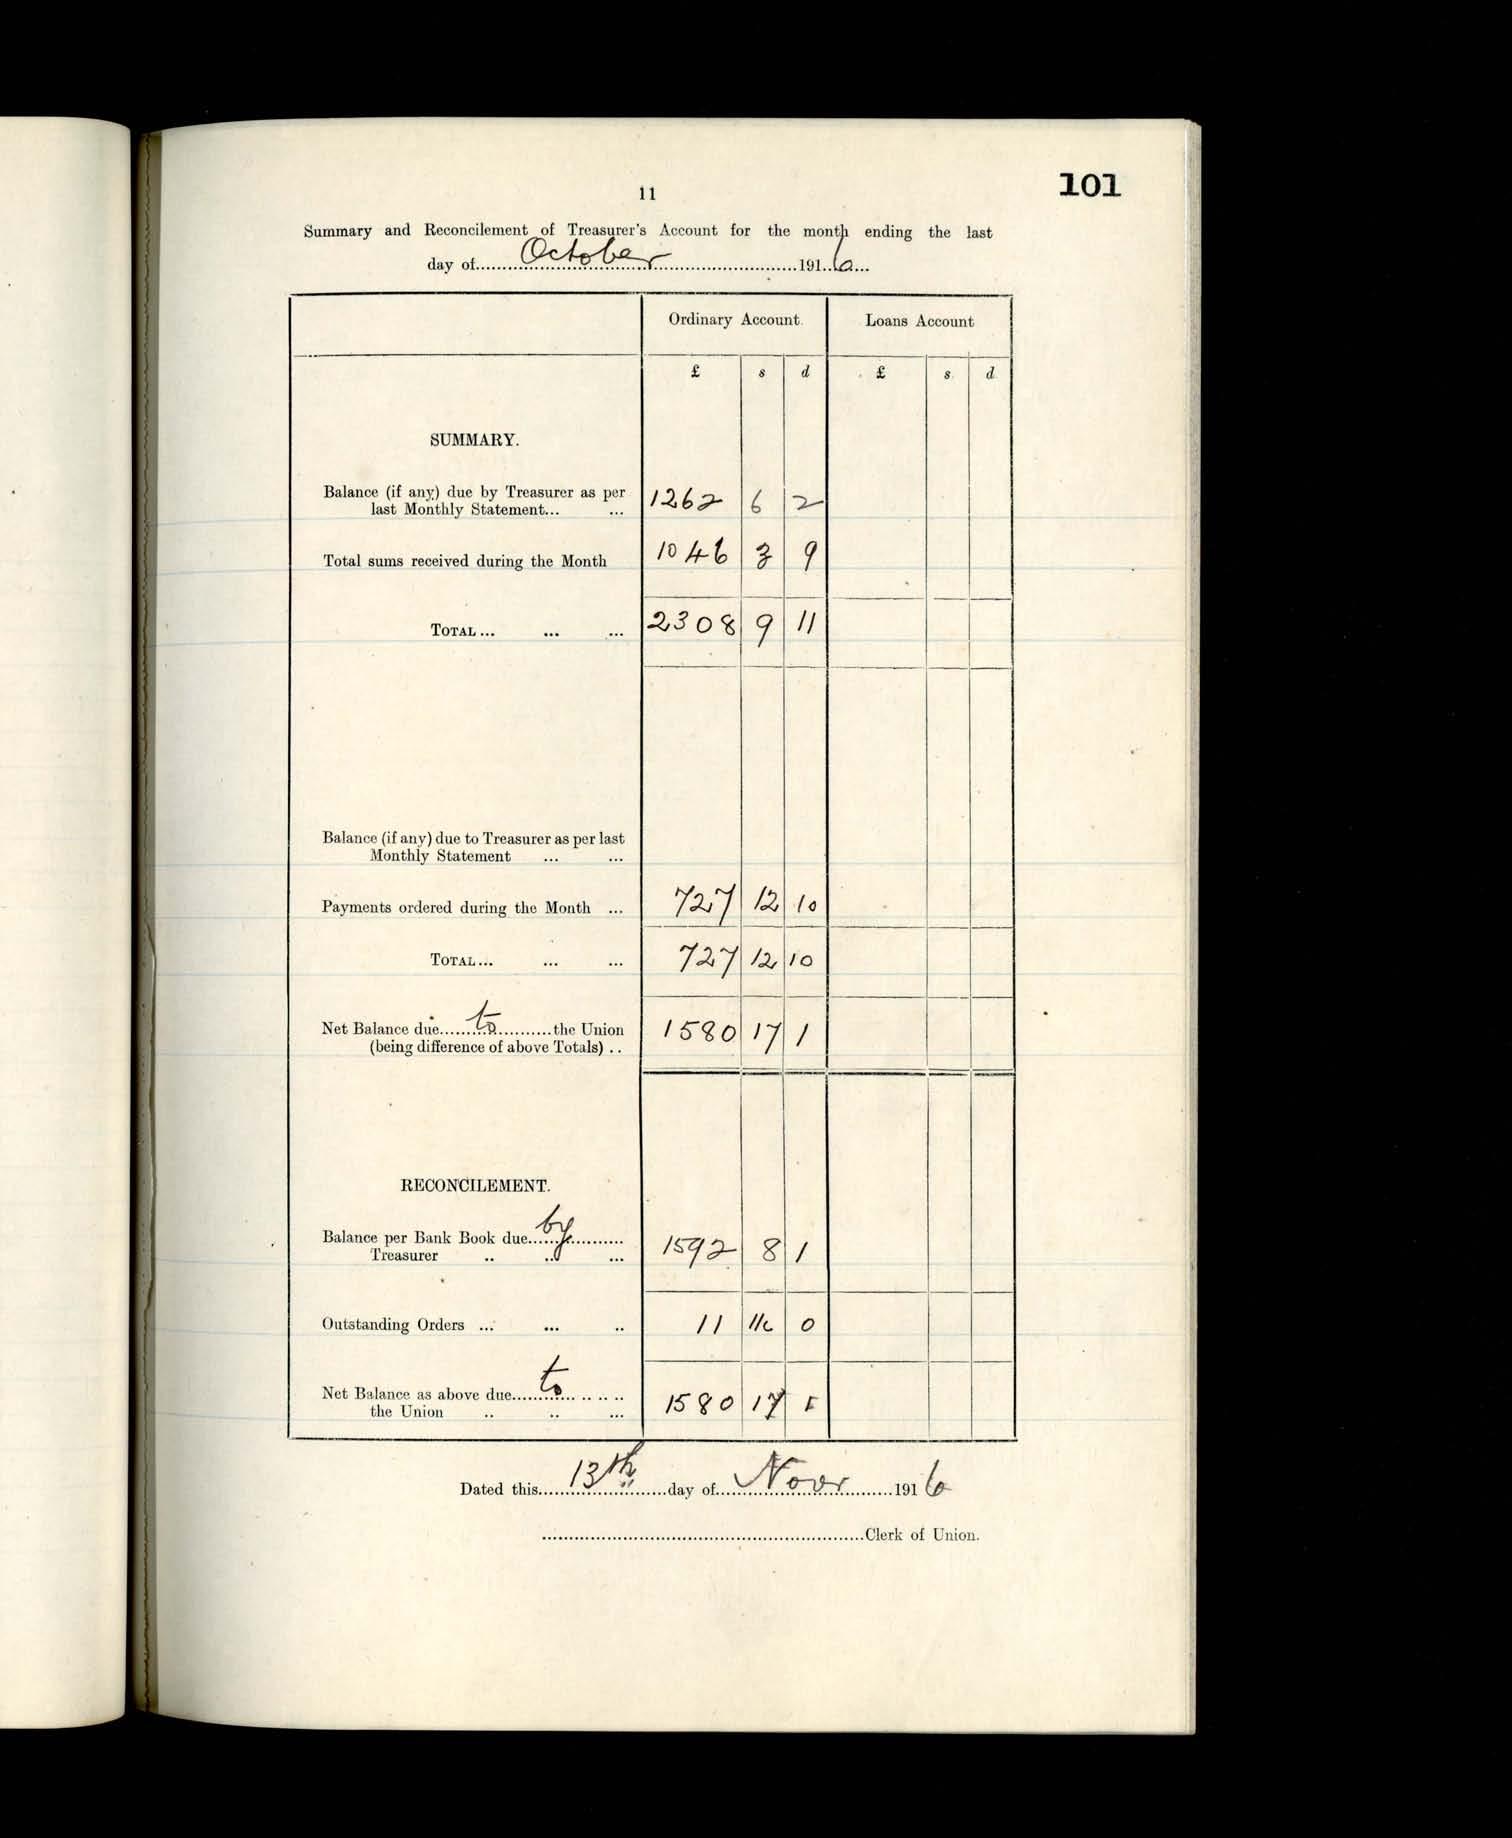 101
11
Summary and Reconcilement of Treasurer's Account for the month ending the last
day of October 1916
Ordinary Account. Loans Account
£ s d £ s. d.
SUMMARY.
Balance (if any) due by Treasurer as per
last Monthly Statement... ... 1262 6 2
Total sums received during the Month 1046 3 9
TOTAL... ... ... 2308 9 11
Balance (if any) due to Treasurer as per last
Monthly Statement ... ...
Payments ordered during the Month ... 727 12 10
TOTAL... ... ... 727 12 10
Net Balance due to the Union
(being difference of above Totals) .. 1580 17 1
RECONCILEMENT.
Balance per Bank Book due by
Treasurer .. .. ... 1592 8 1
Outstanding Orders ... ... .. 11 11 0
Net Balance as above due to
the Union .. .. ... 1580 17 1
Dated this 13th day of Novr 1916
Clerk of Union.